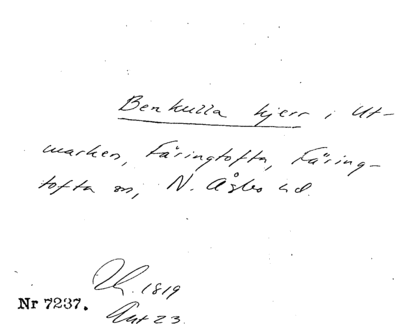 Benkulla kjerr i Ut-
marken, Färingtofta, Färing-
tofta sn, N. Åsbo hd.
1819
Nr 7237.
Akt 23.